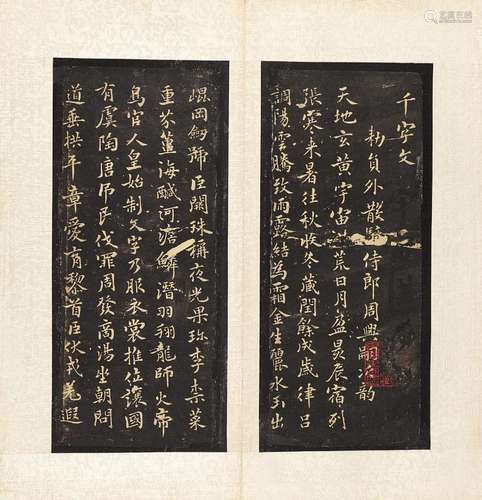 千字文
勑員外散騎侍郎周興嗣次韻
天地玄黃宇宙荒日月盈昃辰宿列
張寒来暑往秋收冬藏閏餘成歲律呂
調陽雲騰致雨露結為霜金生麗水玉出
崐岡劒號巨闕珠稱夜光果珍李柰菜
重芥薑海醎河淡鱗潛羽翔龍師火帝
鳥官人皇始制文字乃服衣裳推位讓國
有虞陶唐吊民伐罪周發商湯坐朝問
道垂拱平章愛育黎首臣伏戎羌遐